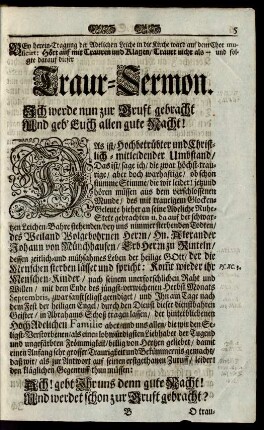 5
BEy herein-Tragung der Adelichen Leiche in die Kirche ward auf dem Chor mu-
siciret: Hört auf mit Trauren und Klagen/ Trauret nicht als und fol-
gte darauf dieser
Traur-Sermon.
Ich werde nun zur Gruft gebracht
Und geb' Euch allen gute Nacht!
DAs ist/ Hochbetrübter und Christ-
lich-mitleidender Umbstand/
Das ist/ sage ich/ die zwar höchst-trau-
rige/ aber doch warhaftige/ obschon
stumme Stimme/ die wir leider! jetzund
hören müssen aus dem verschlossenen
Munde/ des mit traurigem Glocken-
Geleute hieher an seine Adeliche Ruhe-
Stete gebrachten und da auf der schwar-
zen Leichen-Bahre stehenden/ bey uns nunmer sterbenden Todten/
des Weiland Wolgebohrnen Herrn/ Hn. Alexander
Johann von Münchhausen/ Erb-Herrn zu Rinteln/
dessen zeitlich- und mühsahmes Leben der heilige GOtt/ der die
Menschen sterben lässet und spricht: Komt wieder ihr
Menschen-Kinder/ nach seinem unerforschlichen Raht und
Willen/ mit dem Ende des jüngst-verwichenen Herbst Monats
Septembris, zwar sanft und seligst geendiget/ und Ihn am Tage nach
dem Fest der heiligen Engel/ durch den Dienst dieser dienstbahren
Geister/ in Abrahams Schoß tragen lassen/ der hinterbliebenen
HochAdelichen Familie aber und uns allen/ die wir den Se-
ligst-Verstorbenen/ als einen lobwürdigsten Liebhaber der Tugend
und ungefärbten Frömmigkeit/ billig von Hertzen geliebet/ damit
einen Anfang sehr grosser Traurigkeit und Bekümmernis gemacht/
daß wir/ als zur Antwort auf seinen erstgethanen Zuruf/ leider!
den kläglichen Gegenruf thun müssen:
Ach! gebt Ihr uns denn gute Nacht!
Und werdet schon zur Gruft gebracht?
B
O trau-